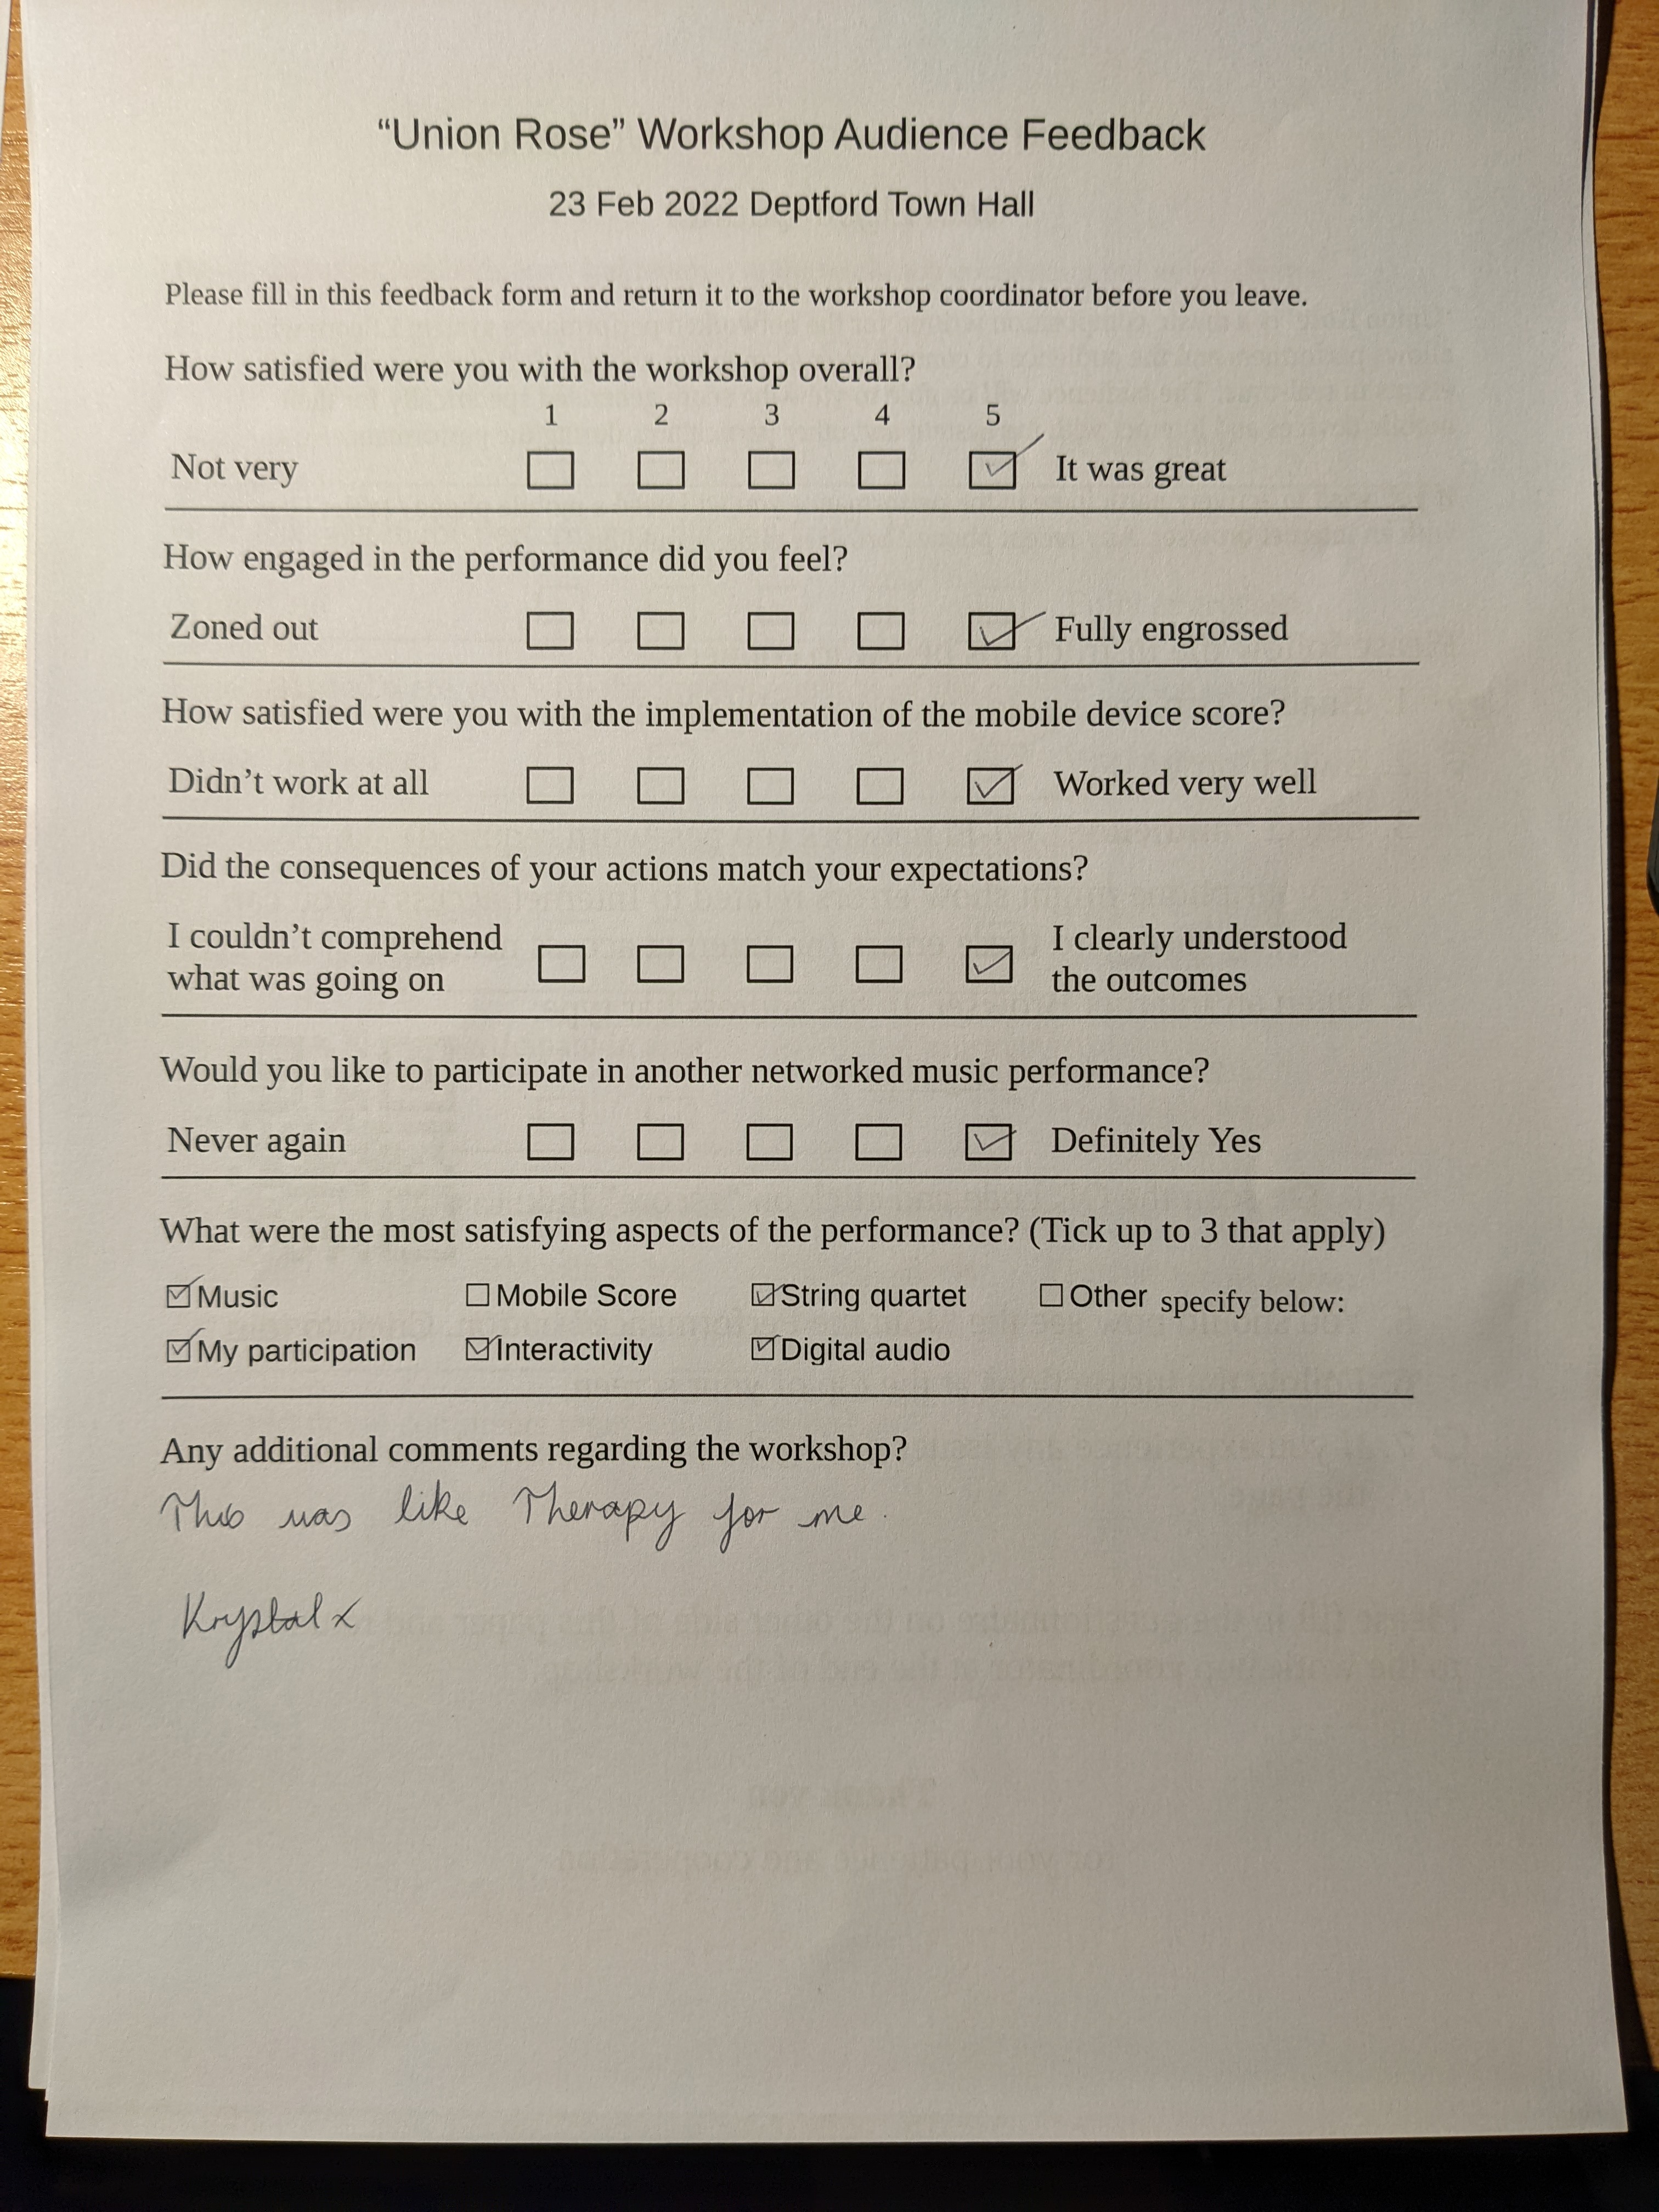 “Union Rose” Workshop Audience Feedback
23 Feb 2022 Deptford Town Hall
Please fill in this feedback form and return it to the workshop coordinator before you leave.
How satisfied were you with the workshop overall?
1 2 3 4 5
Not very ☐ ☐ ☐ ☐ ☑ It was great
How engaged in the performance did you feel?
Zoned out ☐ ☐ ☐ ☐ ☑ Fully engrossed
How satisfied were you with the implementation of the mobile device score?
Didn’t work at all ☐ ☐ ☐ ☐ ☑ Worked very well
Did the consequences of your actions match your expectations?
I couldn’t comprehend ☐ ☐ ☐ ☐ ☑ I clearly understood
what was going on the outcomes
Would you like to participate in another networked music performance?
Never again ☐ ☐ ☐ ☐ ☑ Definitely Yes
What were the most satisfying aspects of the performance? (Tick up to 3 that apply)
☑ Music ☐ Mobile Score ☑ String quartet ☐ Other specify below:
☑ My participation ☑ Interactivity ☑ Digital audio
Any additional comments regarding the workshop?
This was like Therapy for me.
Krystal x